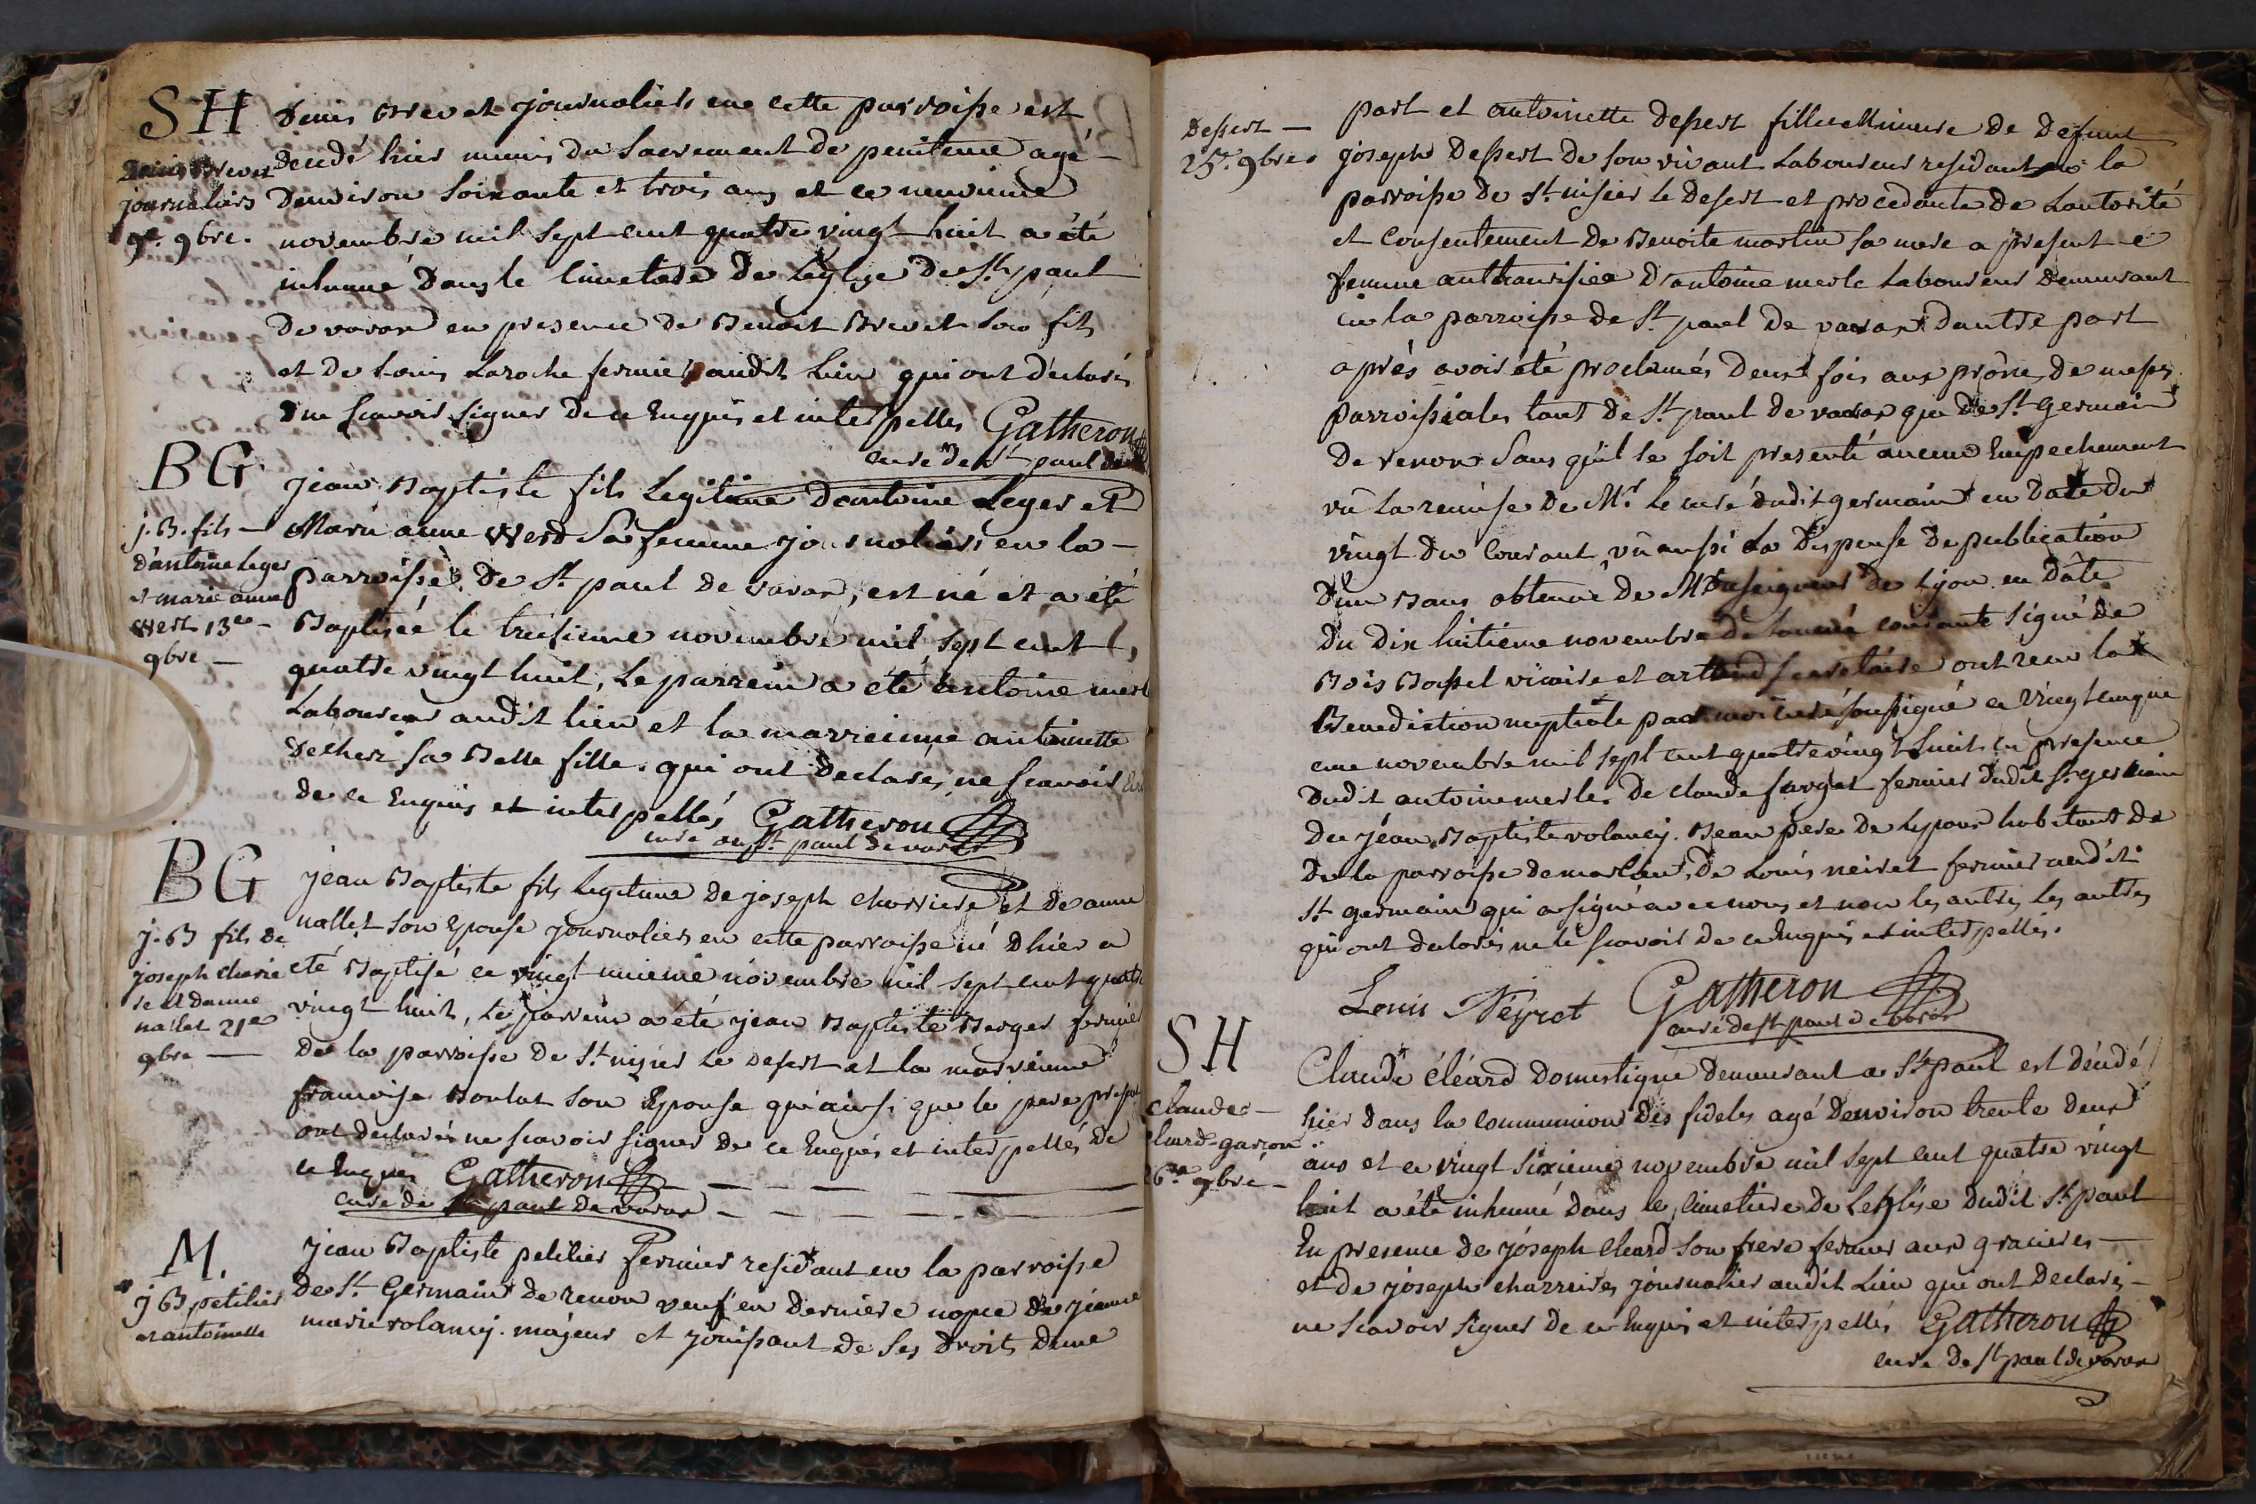 SH
Denis Brevet
journaliers
9e. 9bre.
Denis Brevet journaliers en cette parroisse est
decedé hier munis du Sacrement de penitence agé
Denviron Soixante et trois ans et ce neuvieme
novembre mil Sept cent quatre vingt huit a été
inhumé Dans le Cimetiere De Leglise De St. paul
De varax en presence de Benoit Brevet Son fils
et De Louis Laroche fermier audit lieu qui ont declarés
Ene scavoir signer De ce Enquis et interpelles Gatheron
curé de St. paul
BG
j. B. fils
d'antoine Leger
et marie anne
Werd 13e
9bre
Jean Baptiste fils Legitime Dantoine Leger et
Marie anne Werd Sa femme journaliers en la
parroisse De St. paul de varax, est né et a été
Baptisée le treisieme novembre mil Sept cent
quatre vingt huit, Le parrein a été antoine merle
Laboureur audit lieu et la marreinne antoinette
sa Belle fille. qui ont Declarés ne scavoir
de ce Enquis et interpellés Gatheron
curé de St. paul de varax
BG
j. B fils de
joseph charie
re et danne
nallet 21e
9bre
jean Baptiste fils legitime de joseph charriere et de anne
nallet son Epouse journaliers en cette parroisse né Dhier a
eté Baptisé ce vingt unieme novembre mil sept cent quatre
vingt huit, Le parrein a été jean Baptiste Berger fermier
de la parroisse de St. nizier Le Desert et la marreinne
francoise Boulat son Epouse qu'ainsi que le pere present
ont declarés ne scavoir signer De ce Enquis et interpellés De
ce Enquis Gatheron
curé de St. paul De varax
M.
j B petitier
et antoinette
jean Baptiste petitier fermier residant en la parroisse
de St. Germain de renon veuf en Derniere nopce De jeanne
marie volancy. majeur et jouissant De Ses Droits Dune
Dessert
25e. 9bre.
part et antoinette Dessert fille Mineure De Defunt
joseph Dessert De son vivant Laboureur residant la
parroisse De St. nisier Le Desert et procedante De Lautorité
et Consentement De Benoite marlin Sa mere a present
femme authaurisiée D'antoine merle Laboureur Demeurant
en la parroisse de St. paul De varax Dautre part
aprés avoir été proclamés Deux fois aux prône de messes
parroissiales tant de St. paul de varax que de St. Germain
De renon Sans qu'il se soit presenté aucun Empechement
vû La remise De Mr. Le curé dudit germain en Date Du
vingt Du Courant, vû aussi La Dispense De publication
Dun Bans obtenue De Monseigneur de Lyon en Dâte
Du Dix huitieme novembre de Lannée courante Signé De
Bois Bossel vicaire et artaud secretaire ont recu la
Benediction nuptiale par moi curé soussigné ce Vingt cinqui
eme novembre mil sept cent quatre vingt huit En presence
Dudit antoine merle. De claude fargat fermier dudit St. germain
De jean Baptiste volancy. Beau pere de Lepoux habitant De
De la parroisse de marlieu, De Louis neiret fermier audit
St. germain qui a signé avec nous et non les autres Les autres
qui ont declarés ne le scavoir de ce Enquis et interpellés.
Louis Neyret Gatheron
curé de St. paul de varax
SH
claude
eleard garçon
26e 9bre
Claude éléard Domestique Demeurant a St. paul est décedé
hier dans la communion Des fideles agé Denviron trente Deux
ans et ce vingt sixieme novembre mil sept cent quatre vingt
huit a été inhumé dans le Cimetiere de Leglise Dudit St. paul
En presence de joseph eleard son frere fermier aux
et de joseph charreires journalier audit Lieu qui ont Declarés
ne scavoir signer De ce Enquis et interpellés Gatheron
curé De St. paul de varax